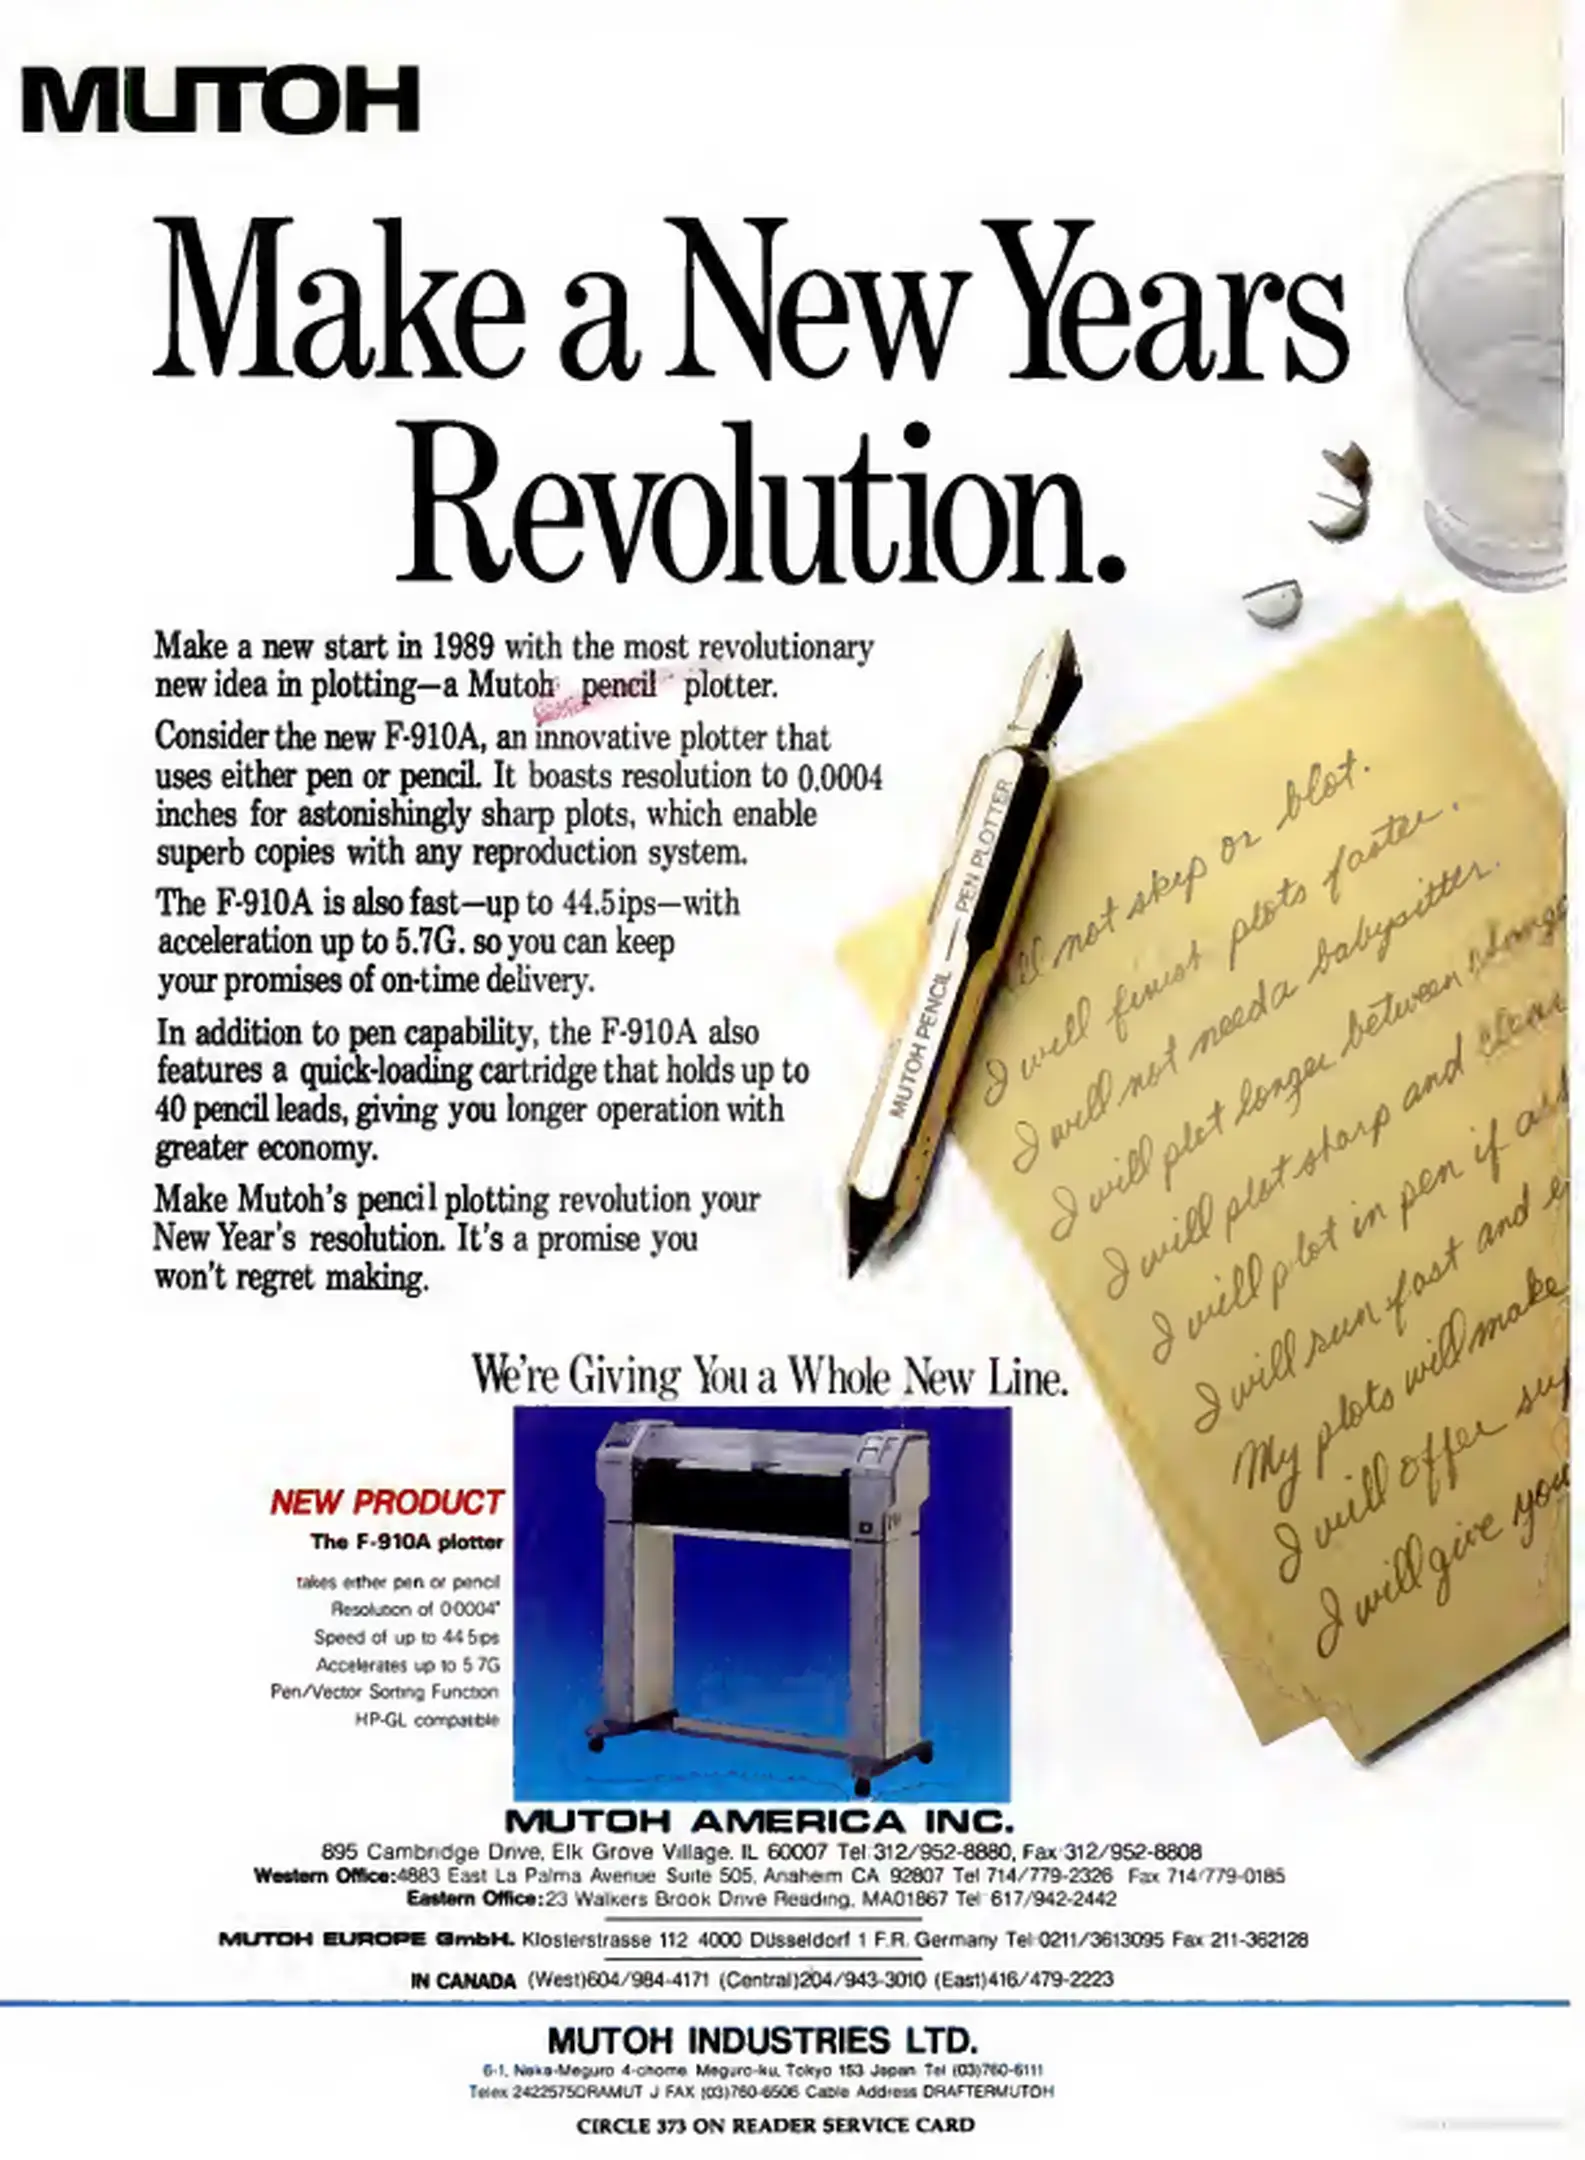 MUTOH
Make a New Years
Revolution.
Make a new start in 1989 with the most revolutionary
new idea in plotting—a Mutoh pencil plotter.
Consider the new F-910A, an innovative plotter that
uses either pen or pencil. It boasts resolution to 0.0004
inches for astonishingly sharp plots, which enable
superb copies with any reproduction system.
The F-910A is also fast—up to 44.5ips—with
acceleration up to 5.7G. so you can keep
your promises of on-time delivery.
In addition to pen capability, the F-910A also
features a quick-loading cartridge that holds up to
40 pencil leads, giving you longer operation with
greater economy.
Make Mutoh's pencil plotting revolution your
New Year's resolution. It's a promise you
won't regret making.
MUTOH PENCIL — PEN PLOTTER
not skip or blot.
I will finish plots faster.
I will not need a babysitter.
I will plot longer between
I will plot sharp and clear
I will plot in pen if
I will run fast and
My plots will make
I will offer
I will give you
We're Giving You a Whole New Line.
NEW PRODUCT
The F-910A plotter
takes either pen or pencil
Resolution of 0.0004"
Speed of up to 44.5ips
Accelerates up to 5.7G
Pen/Vector Sorting Function
HP-GL compatible
MUTOH AMERICA INC.
895 Cambridge Drive, Elk Grove Village, IL 60007 Tel:312/952-8880, Fax:312/952-8808
Western Office:4883 East La Palma Avenue Suite 505, Anaheim CA 92807 Tel 714/779-2326 Fax 714/779-0185
Eastern Office:23 Walkers Brook Drive Reading, MA01867 Tel 617/942-2442
MUTOH EUROPE GmbH. Klosterstrasse 112 4000 Düsseldorf 1 F.R. Germany Tel:0211/3613095 Fax 211-362128
IN CANADA (West)604/984-4171 (Central)204/943-3010 (East)416/479-2223
MUTOH INDUSTRIES LTD.
6-1, Naka-Meguro 4-chome, Meguro-ku, Tokyo 153 Japan Tel (03)760-6111
Telex 2422575DRAMUT J FAX (03)760-6506 Cable Address DRAFTERMUTOH
CIRCLE 373 ON READER SERVICE CARD